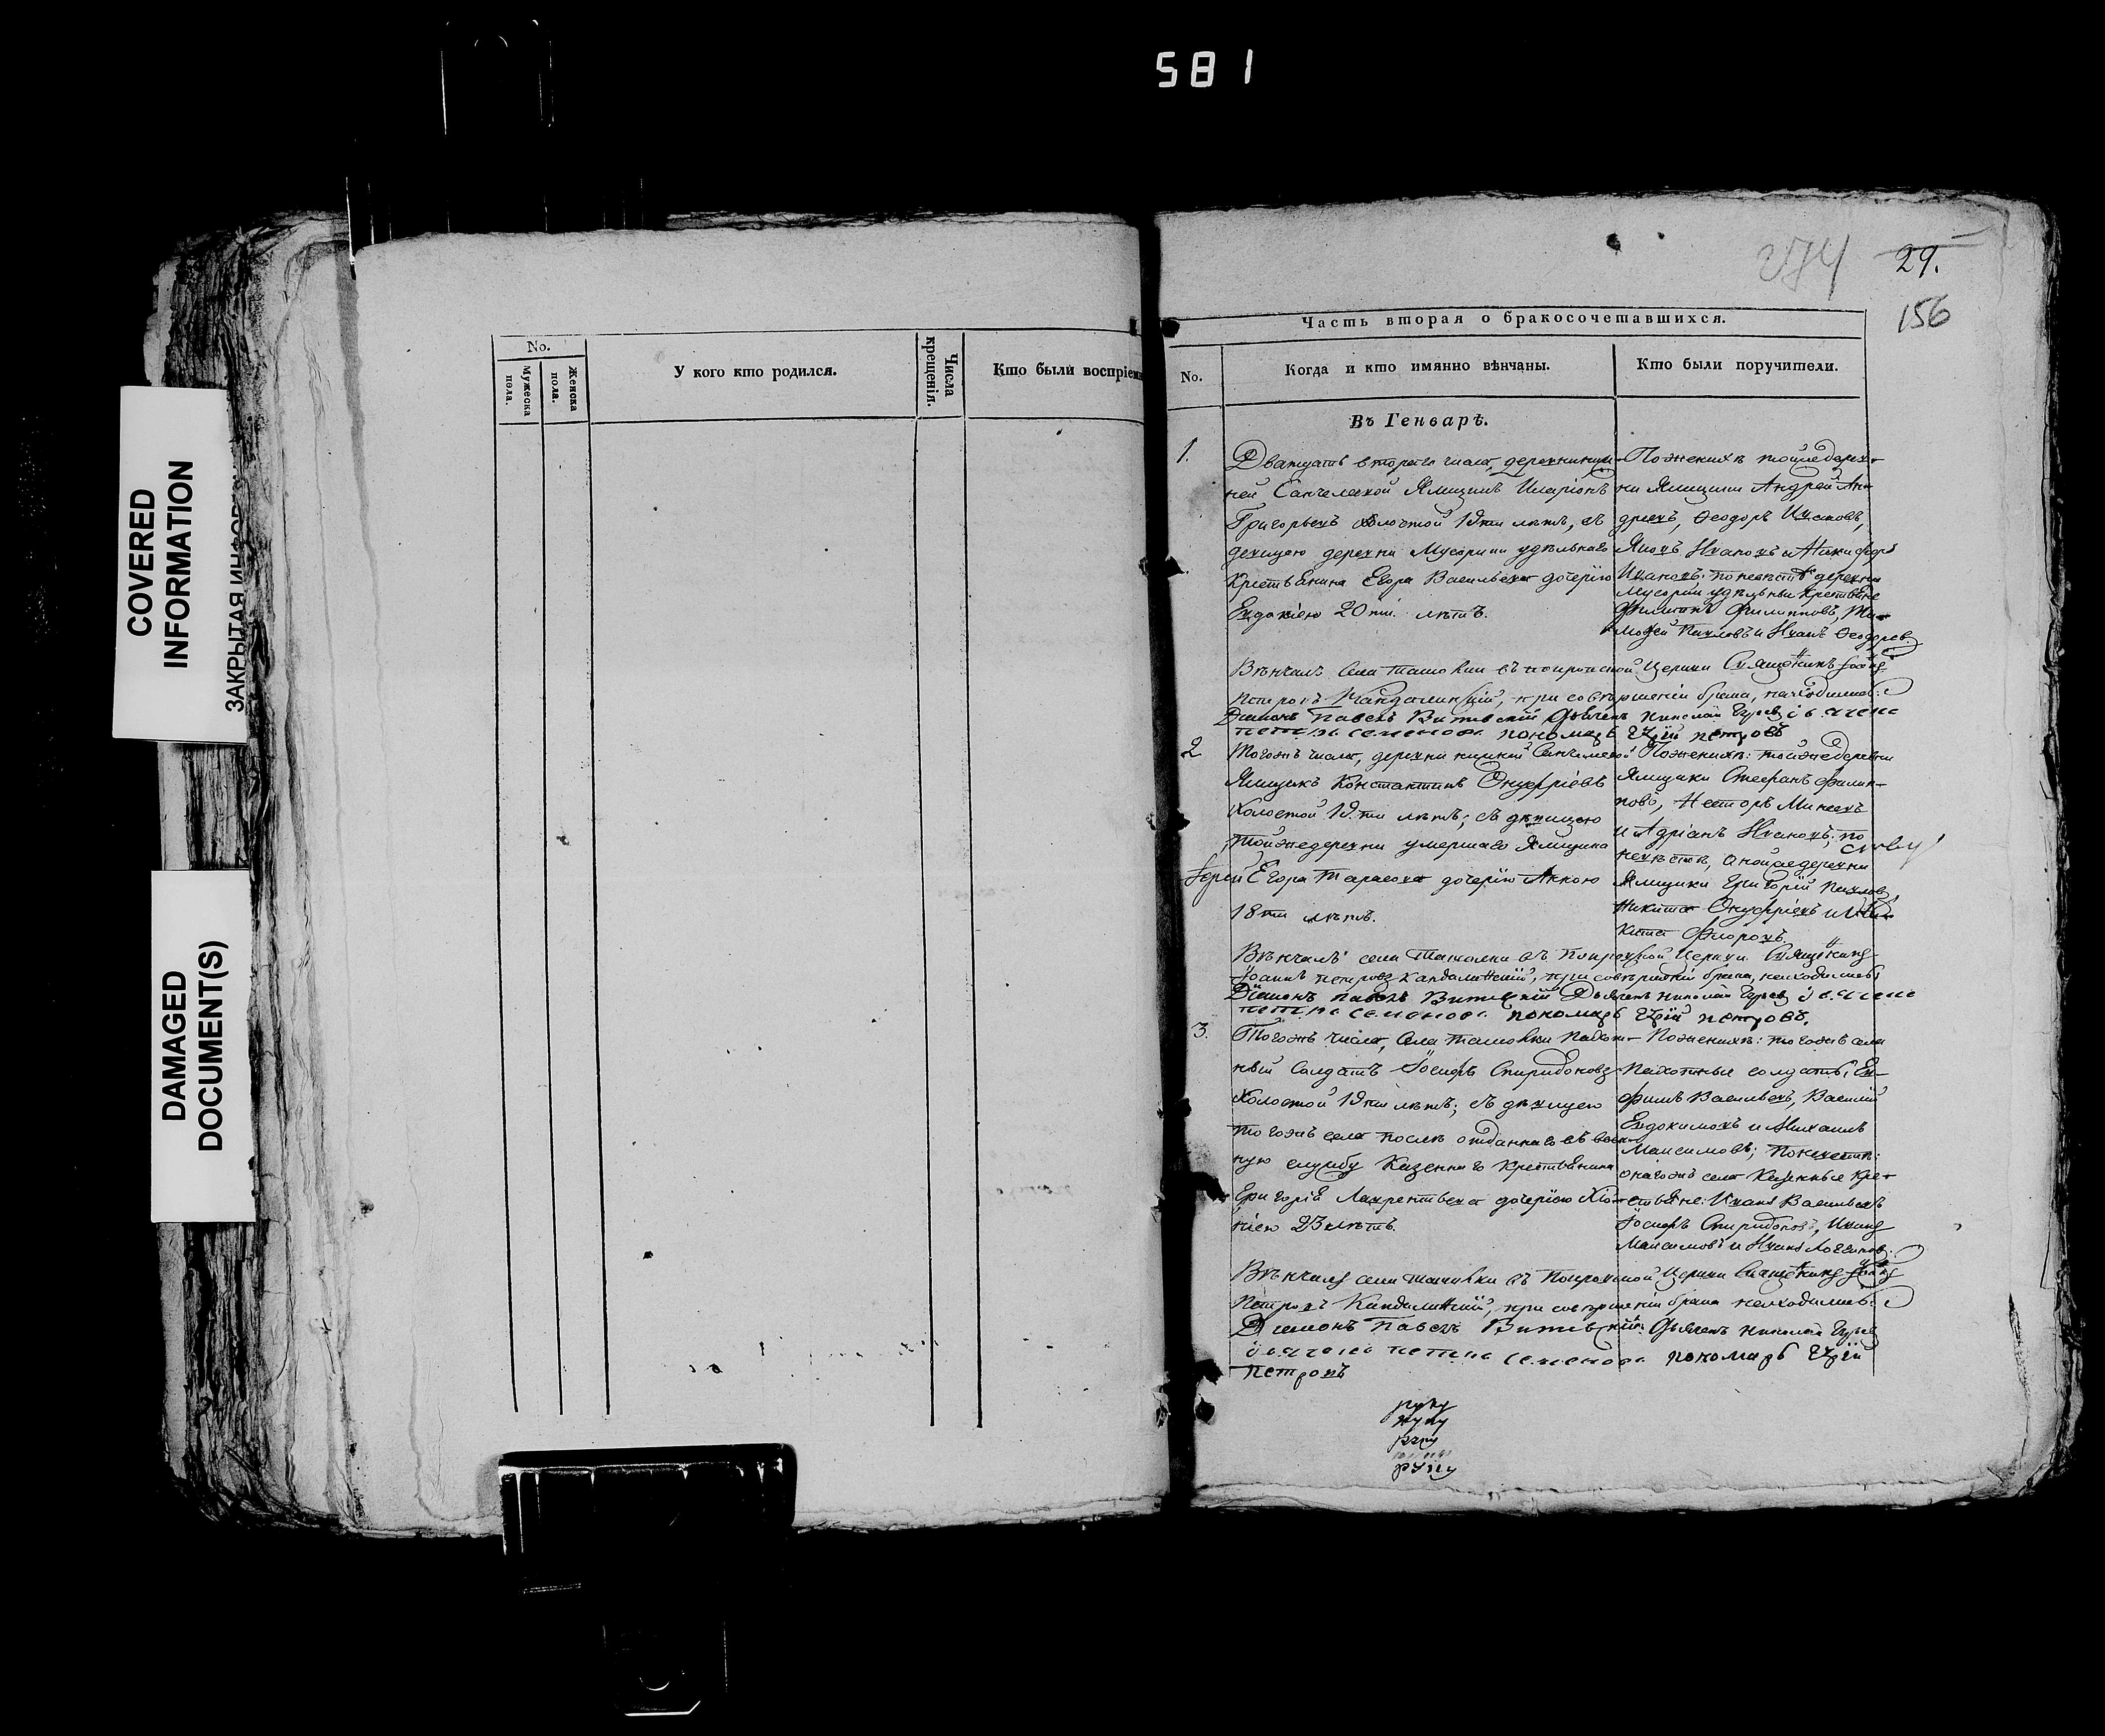 581
COVERED
INFORMATION
ЗАКРЫТАЯ
DAMAGED
DOCUMENT(S)
No.
Мужеска пола.
Женска пола.
У кого кто родился.
Числа крещенія.
Кто были воспріем
274
29.
156
Часть вторая о бракосочетавшихся.
No.
Когда и кто имянно вѣнчаны.
Кто были поручители.
Въ Генварѣ.
1.
Дватцать втораго числа,
ней Ямщикъ Иларіонъ
Григорьевъ холостой 19ти лѣтъ, съ
девицею деревни Мусорки удѣльнаго
крестьянина Егора Васильева дочерію
Евдокіею 20ти лѣтъ.
По женихѣ тойже дерев-
ни Ямщики Андрей Ан-
дреевъ, Ѳеодоръ
Ивановъ и Никифоръ
Ивановъ: по невѣстѣ деревни
Мусорки удѣльны крестьяне
Филиппъ Филипповъ, Ти-
мофей Павловъ и Иванъ Ѳеодоровъ.
Вѣнчалъ села Ташолки въ покровской Церкви Священникъ Іоаннъ
Петровъ Кандалинскій, при совершеніи брака, находились:
Діаконъ Павелъ Витевскій Дьячекъ Николай Гурьевъ
пономарь петровъ
2
Тогожъ числа, деревни
Ямщикъ Константинъ Онуфріевъ
холостой 19.ти лѣтъ; съ дѣвицею
тойже деревни умершаго Ямщика
Егора Тарасова дочерію Анною
18ти лѣтъ.
По женихѣ: тойже деревни
Ямщики Стефанъ Филип-
повъ, Несторъ Минеевъ
и Адріанъ Ивановъ; по
невѣстѣ, онойже деревни
Ямщики Григорій Павловъ,
Никита Онуфріевъ и Ни-
кита Фроловъ.
Вѣнчалъ села Ташолки въ Покровской Церкви Священникъ
Іоаннъ петровъ Кандалинскій, при совершеніи брака, находились
Діаконъ павелъ Витевскій Дьячекъ Николай Гурьевъ
пономарь петровъ.
3.
Тогожъ числа, села Ташолки Пахат-
ный Солдатъ Іосифъ Спиридоновъ
Холостой 19ти лѣтъ; съ дѣвицею
тогожъ села послѣ отданнаго въ воен-
ную службу Казеннаго крестьянина
Григорія Лаврентьева дочерію
ніею 23 лѣтъ.
По женихѣ: тогожъ села
Пахотные солдаты: Еф-
фимъ Васильевъ, Василій
Евдокимовъ и Михаилъ
Максимовъ; по невѣстѣ:
онагожъ села Казенные кре-
стьяне: Иванъ Васильевъ
Іосифъ Спиридоновъ, Иванъ
Максимовъ и Иванъ
Вѣнчалъ села Ташолки въ Покровской Церкви Священникъ Іоаннъ
Петровъ Кандалинскій, при совершеніи брака находились:
Діаконъ Павелъ Витевскій: Дьячекъ Николай Гурьевъ
пономарь
петровъ
руку
руку
руку
руку